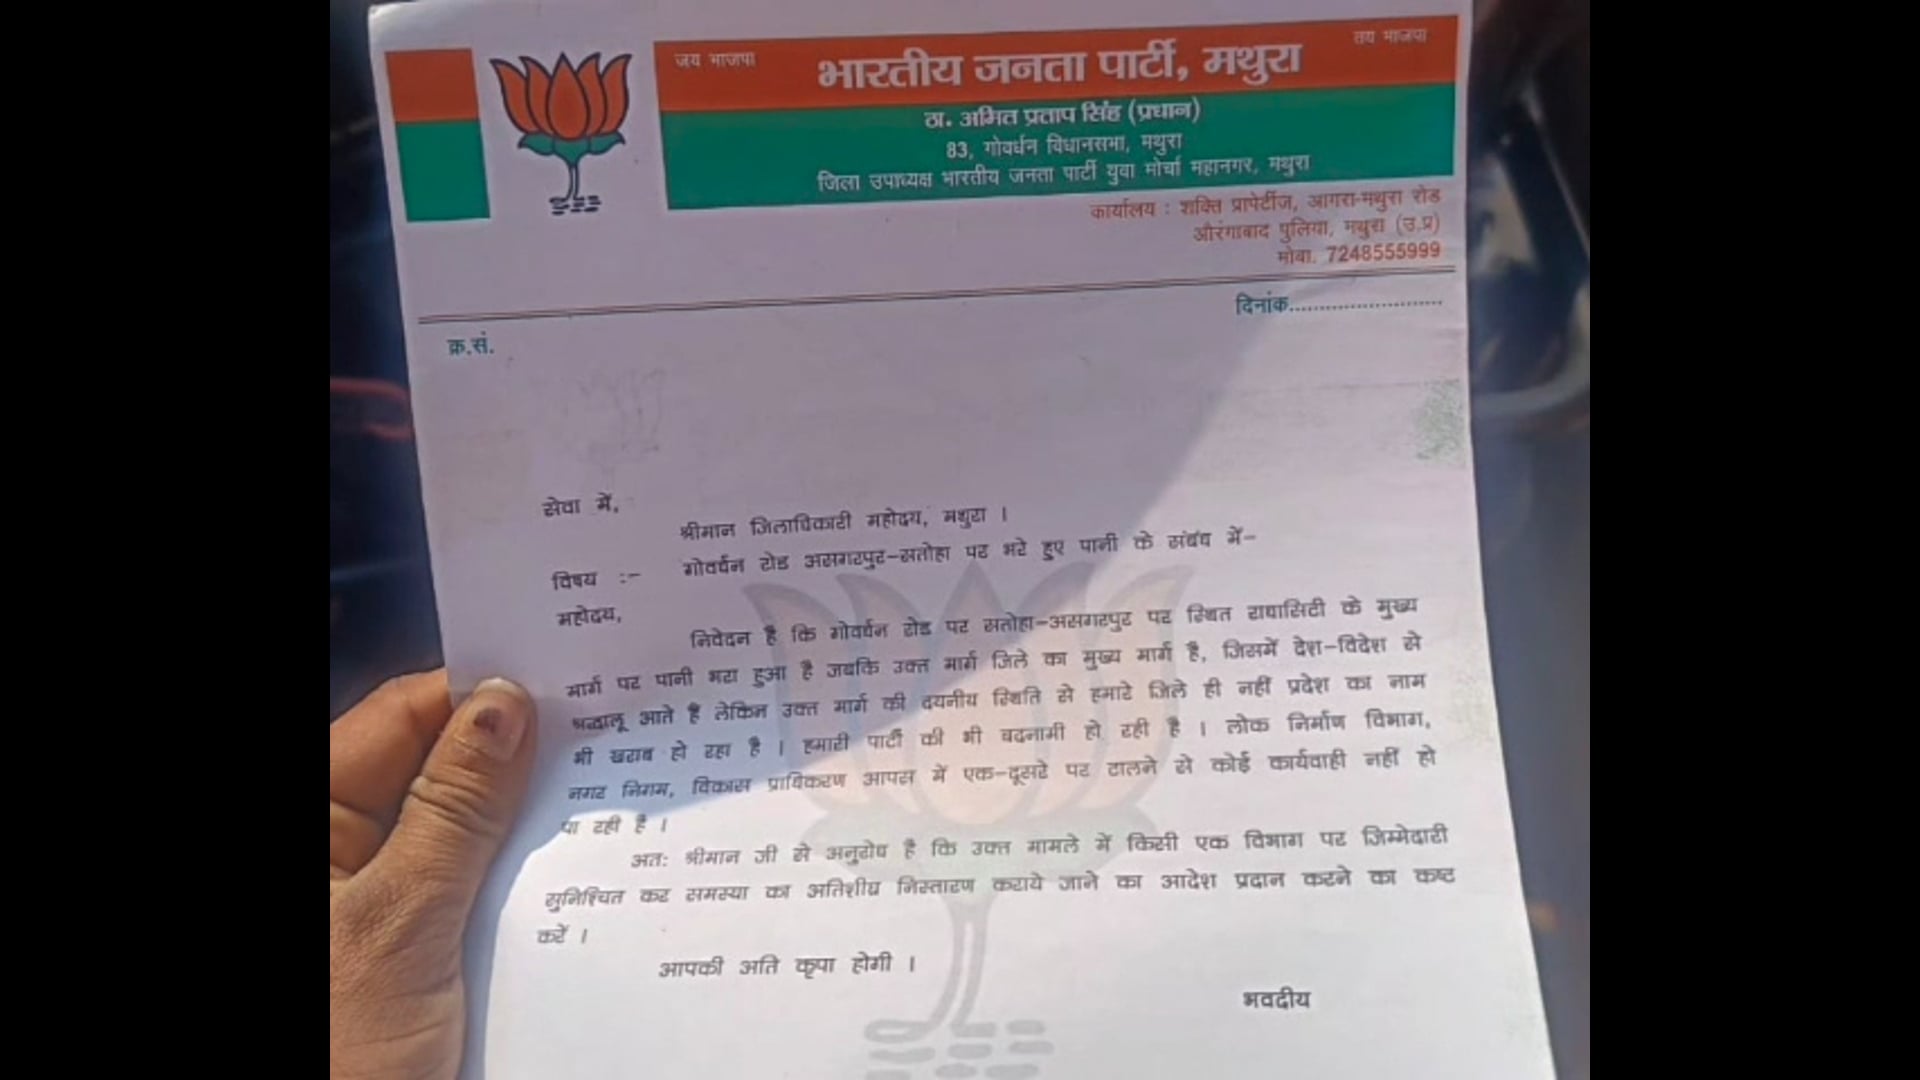 जय भाजपा
तय भाजपा
भारतीय जनता पार्टी, मथुरा
ठा. अमित प्रताप सिंह (प्रधान)
83, गोवर्धन विधानसभा, मथुरा
जिला उपाध्यक्ष भारतीय जनता पार्टी युवा मोर्चा महानगर, मथुरा
कार्यालय : शक्ति प्रापेर्टीज, आगरा-मथुरा रोड
औरंगाबाद पुलिया, मथुरा (उ.प्र)
मोबा. 7248555999
दिनांक..........................
क्र.सं.
सेवा में,
श्रीमान जिलाधिकारी महोदय, मथुरा ।
विषय :- गोवर्धन रोड असगरपुर-सतोहा पर भरे हुए पानी के संबंध में-
महोदय,
निवेदन है कि गोवर्धन रोड पर सतोहा-असगरपुर पर स्थित राधासिटी के मुख्य
मार्ग पर पानी भरा हुआ है जबकि उक्त मार्ग जिले का मुख्य मार्ग है, जिसमें देश-विदेश से
श्रद्धालू आते हैं लेकिन उक्त मार्ग की दयनीय स्थिति से हमारे जिले ही नहीं प्रदेश का नाम
भी खराब हो रहा है । हमारी पार्टी की भी बदनामी हो रही है । लोक निर्माण विभाग,
नगर निगम, विकास प्राधिकरण आपस में एक-दूसरे पर टालने से कोई कार्यवाही नहीं हो
पा रही है ।
अतः श्रीमान जी से अनुरोध है कि उक्त मामले में किसी एक विभाग पर जिम्मेदारी
सुनिश्चित कर समस्या का अतिशीघ्र निस्तारण कराये जाने का आदेश प्रदान करने का कष्ट
करें ।
आपकी अति कृपा होगी ।
भवदीय